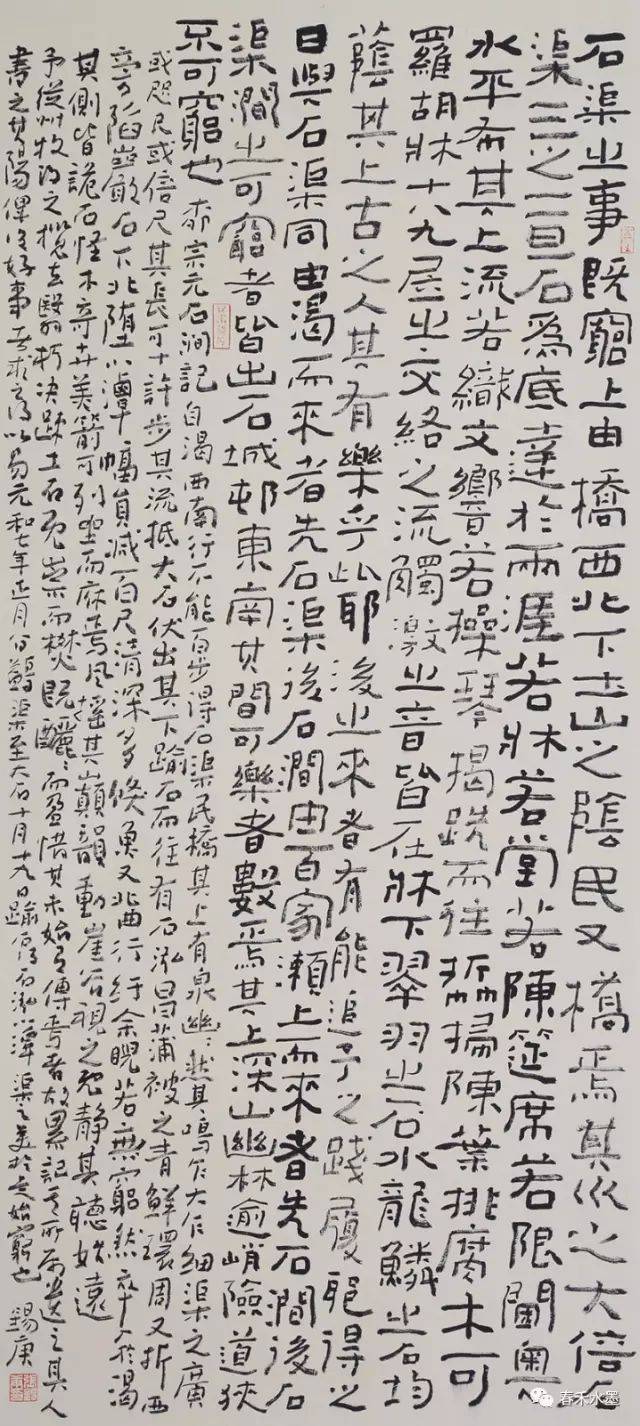 石渠之事既窮上由橋西北下土山之陰民又橋焉其水之大倍石
渠三之一亘石為底達於兩涯若牀若堂若陳筵席若限閫奧
水平布其上流若織文響若操琴揭跣而往折竹掃陳葉排腐木可
羅胡牀十八九居之交絡之流觸激之音皆在牀下翠羽之石水龍鱗之石均
蔭其上古之人其有樂乎此耶後之來者有能追予之踐履耶得之
日與石渠同由渴而來者先石渠後石澗由百家瀨上而來者先石澗後石
渠澗之可窮者皆出石城邨東南其間可樂者數焉其上深山幽林逾峭險道狹
不可窮也 柳宗元石澗記 自渴西南行不能百步得石渠民橋其上有泉幽幽然其鳴乍大乍細渠之廣
或咫尺或倍尺其長可十許步其流抵大石伏出其下踰石而往有石泓昌蒲被之青鮮環周又折西
旁陷巖石下北墮小潭幅員減百尺清深多儵魚又北曲行紆余睨若無窮然卒入於渴
其側皆詭石怪木奇卉美箭可列坐而庥焉風搖其巔韻動崖谷視之既靜其聽始遠
予從州牧得之攬去翳朽決疏土石既崇而焚既釃而盈惜其未始有傳焉者故累記其所屬遺之其人
書之其陽俾後好事者求之得以易元和七年正月八日蠲渠至大石十月十九日踰石得石泓小潭渠之美於是始窮也 錫庚
春禾水墨